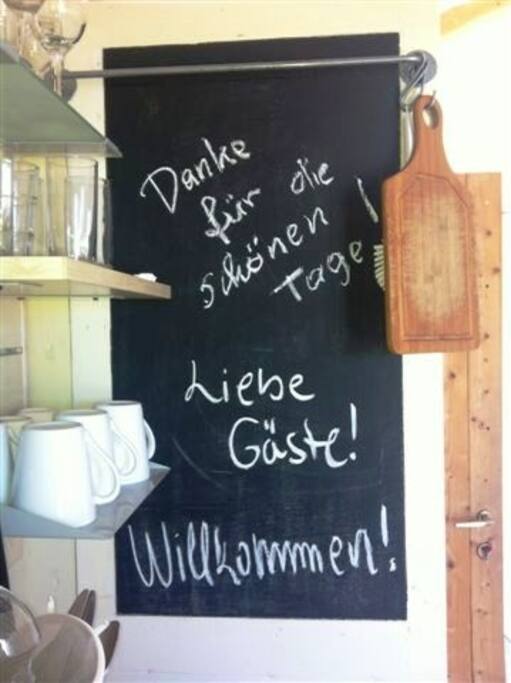 Danke
für die
schönen
Tage!
Liebe
Gäste!
Willkommen!